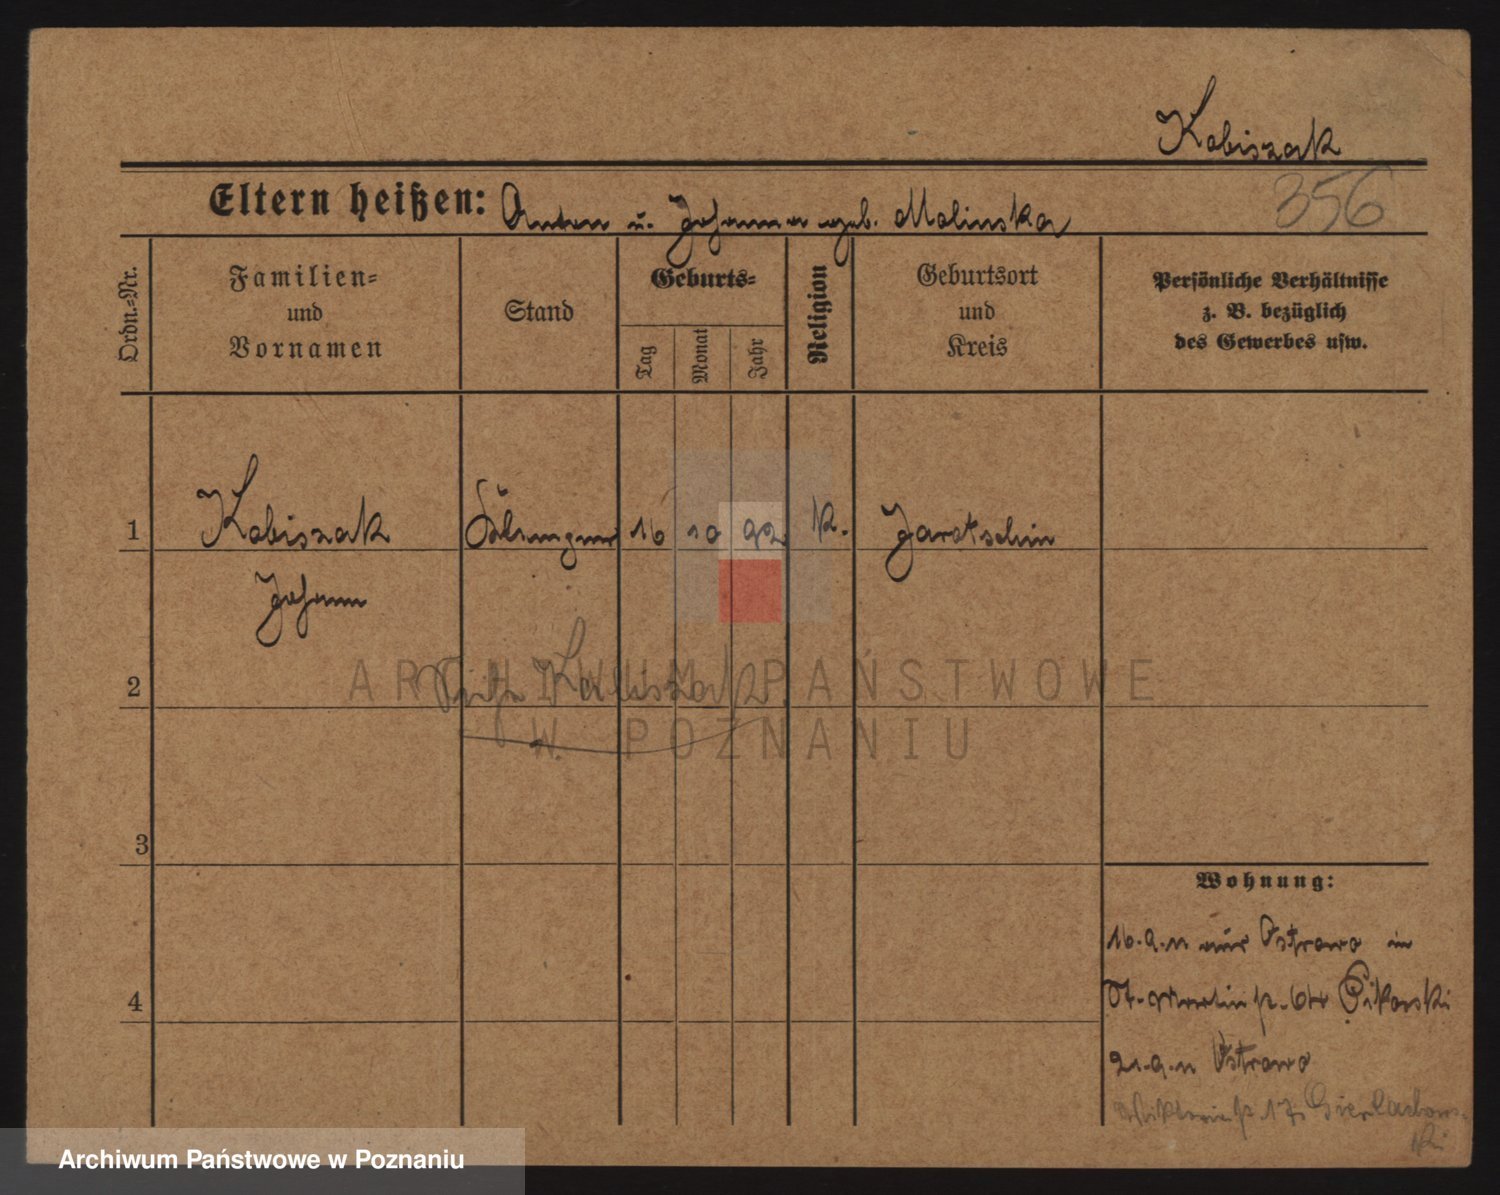 Kabiszak
Eltern heißen: Anton u. Johanna geb. Malinska
356
Ordn.-Nr.
Familien-
und
Vornamen
Stand
Geburts-
Tag
Monat
Jahr
Religion
Geburtsort
und
Kreis
Persönliche Verhältnisse
z. B. bezüglich
des Gewerbes usw.
1 Kabiszak 16 10 92 k. Jarotschin
Johann
2 Kabiszak
3
4
Wohnung:
16.9.11 aus Ostrowo in
St. Martinstr. 64 Pikarski
21.9.11 Ostrowo
Viktoriastr 17
ARCHIWUM PAŃSTWOWE
W POZNANIU
Archiwum Państwowe w Poznaniu